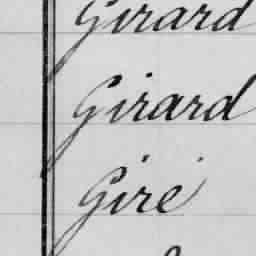 Girard
Girard
Giré